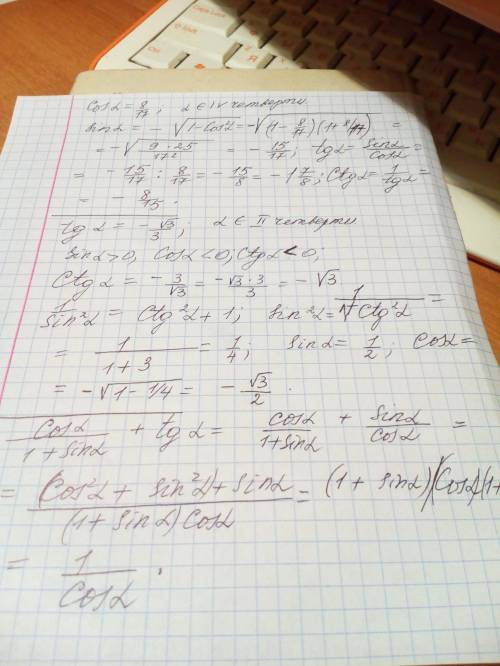 cosα = 8/17; α ∈ IV четверти
sinα = - √(1 - cos²α) = -√((1 - 8/17)(1 + 8/17)) =
= -√(9·25/17²) = - 15/17; tgα = sinα/cosα =
= - 15/17 : 8/17 = - 15/8 = -1 7/8; ctgα = 1/tgα =
= - 8/15.
tgα = - √3/3; α ∈ II четверти
sinα > 0, cosα < 0; ctgα < 0;
ctgα = - 3/√3 = -√3·3/3 = - √3
1/sin²α = ctg²α + 1; sin²α = 1/(1+ctg²α) =
= 1/(1 + 3) = 1/4; sinα = 1/2; cosα =
= -√(1 - 1/4) = - √3/2.
cosα/(1 + sinα) + tgα = cosα/(1 + sinα) + sinα/cosα =
= ((cos²α + sin²α) + sinα)/((1 + sinα) cosα) = (1 + sinα)/(cosα(1+
= 1/cosα.